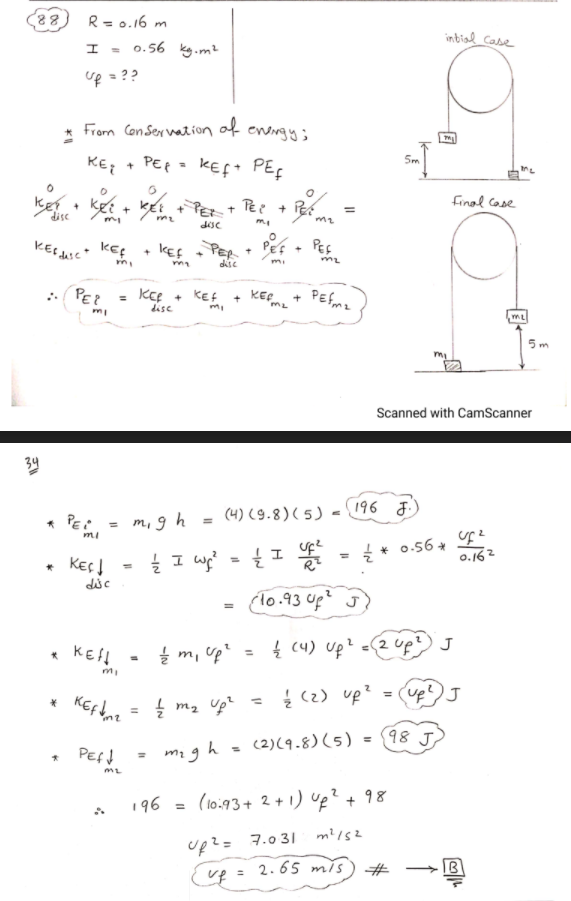 88
R = 0.16 m
I = 0.56 kg.m²
υf = ??
* From Conservation of energy;
KEi + PEi = KEf + PEf
KEi disc + KEi m1 + KEi m2 + PEi disc + PEi m1 + PEi m2 =
0 0 0 0
KEf disc + KEf m1 + KEf m2 + PEf disc + PEf m1 + PEf m2
0
∴ PEi m1 = KEf disc + KEf m1 + KEf m2 + PEf m2
intial Case
m1
5m
m2
Final Case
m2
5 m
m1
Scanned with CamScanner
34
* PEi m1 = m1 g h = (4)(9.8)(5) = 196 J.
* KEf↓ disc = 1/2 I ωf² = 1/2 I υf²/R² = 1/2 * 0.56 * υf²/0.16²
= 10.93 υf² J
* KEf↓ m1 = 1/2 m1 υf² = 1/2 (4) υf² = 2 υf² J
* KEf↓ m2 = 1/2 m2 υf² = 1/2 (2) υf² = υf² J
* PEf↓ m2 = m2 g h = (2)(9.8)(5) = 98 J
∴ 196 = (10.93 + 2 + 1) υf² + 98
υf² = 7.031 m²/s²
υf = 2.65 m/s # → B